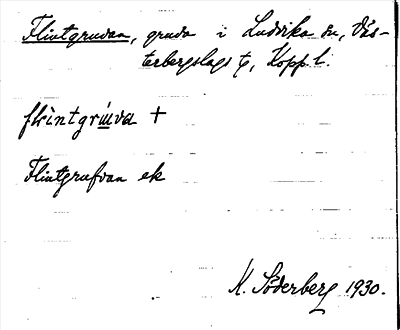 Flintgruvan, gruva i Ludvika sn, Väs-
terbergslags tg, Kopp.l.
flìntgrúva +
Flintgrufvan ek
K. Söderberg 1930.